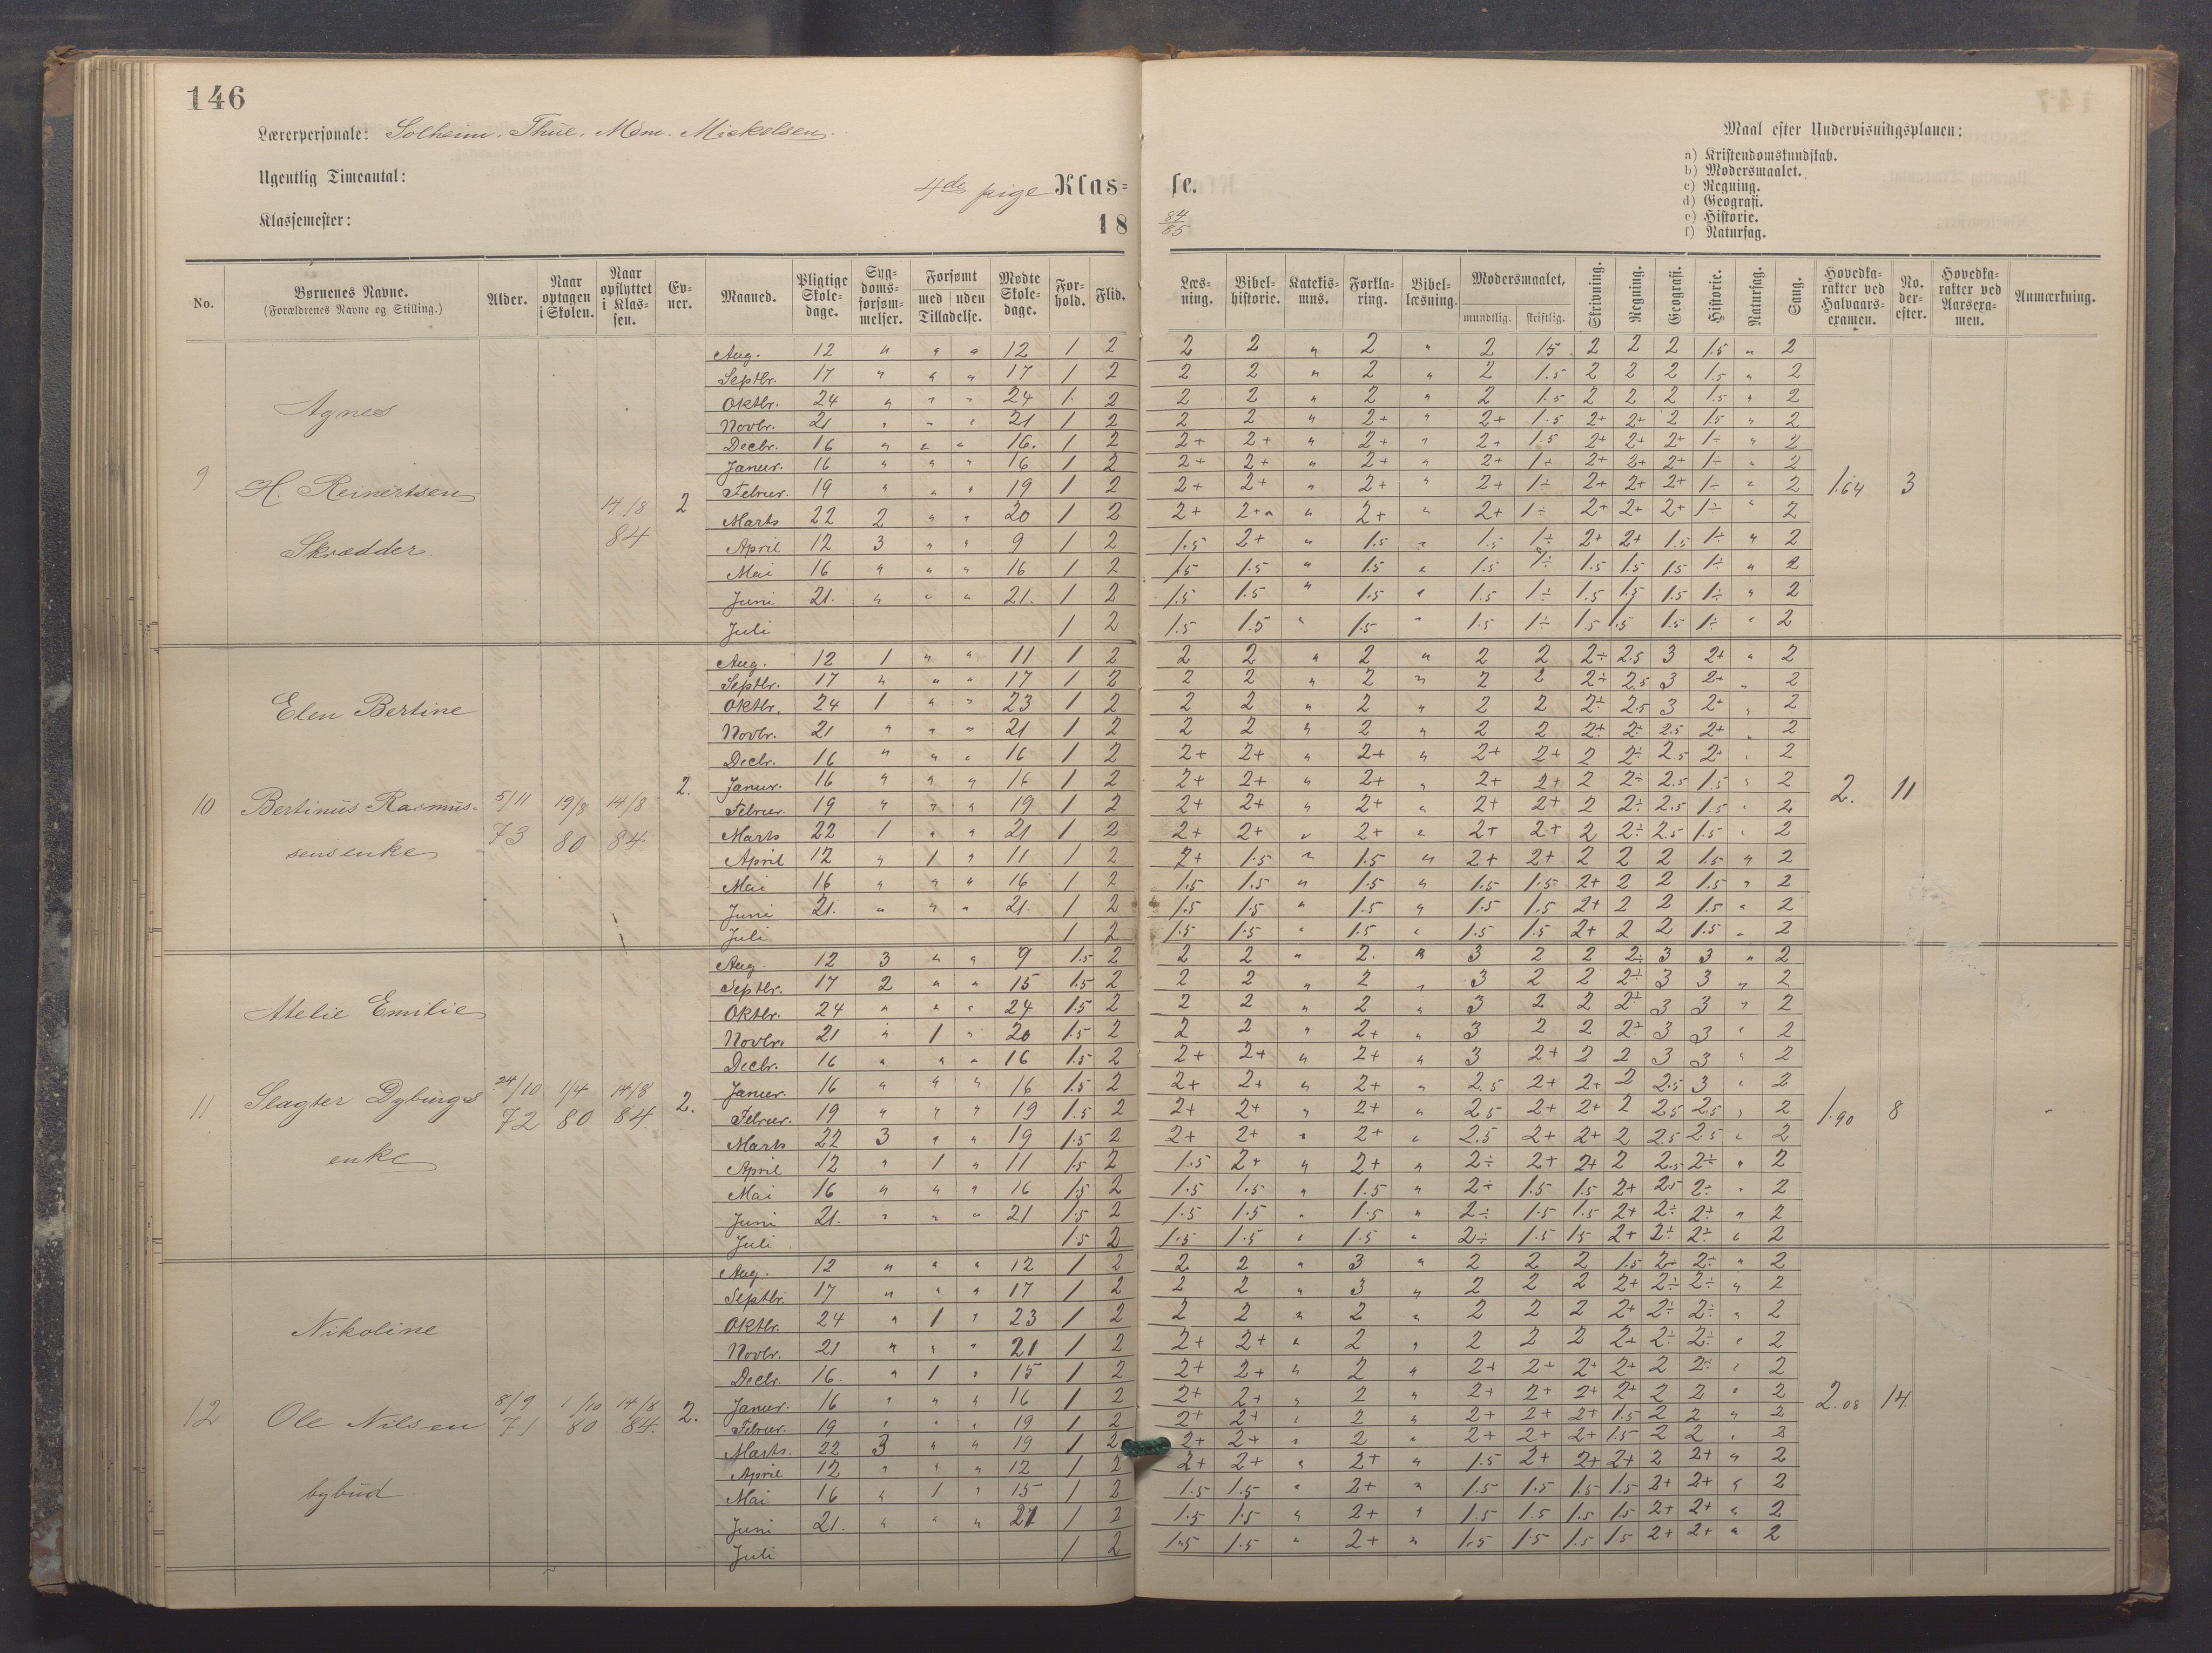 146
Lærerpersonale: Solheim. Thue. Mdm. Mickelsen.
Ugentlig Timeantal:
4de pige Klas= se.
Klassemester:
18 84/85
Maal efter Undervisningsplanen:
a) Kristendomskundskab.
b) Modersmaalet.
c) Regning.
d) Geografi.
e) Historie.
f) Naturfag.
No. Børnenes Navne. (Forældrenes Navne og Stilling.) Alder. Naar optagen i Skolen. Naar opflyttet i Klassen. Evner. Maaned. Pligtige Skoledage. Sygdomsforsømmelser. Forsømt med uden Tilladelse. Mødte Skoledage. Forhold. Flid. Læsning. Bibelhistorie. Katekismus. Forklaring. Bibellæsning. Modersmaalet, mundtlig. skriftlig. Skrivning. Regning. Geografi. Historie. Naturfag. Sang. Hovedkarakter ved Halvaarsexamen. No. derefter. Hovedkarakter ved Aarsexamen. Anmærkning.
9 Agnes
H. Reinertsen
Skrædder
14/8 84 2
Aug. 12 " " " 12 1 2 2 2 " 2 " 2 1.5 2 2 2 1.5 " 2
Septbr. 17 " " " 17 1 2 2 2 " 2 " 2 1.5 2 2 2 1.5 " 2
Oktbr. 24 " " " 24 1. 2 2 2 " 2 " 2 1.5 2 2 2 1.5 " 2
Novbr. 21 " " " 21 1 2 2 2 " 2+ " 2+ 1.5 2+ 2+ 2 1.5 " 2
Decbr. 16 " " " 16. 1 2 2+ 2+ " 2+ " 2+ 1.5 2+ 2+ 2+ 1÷ " 2
Januar. 16 " " " 16 1 2 2+ 2+ " 2+ " 2+ 1÷ 2+ 2+ 2+ 1÷ " 2
Februar. 19 " " " 19 1 2 2+ 2+ " 2+ " 2+ 1÷ 2+ 2+ 2+ 1÷ " 2
Marts 22 2 " " 20 1 2 2+ 2+ " 2+ " 2+ 1÷ 2+ 2+ 2+ 1÷ " 2
April 12 3 " " 9 1 2 1.5 2+ " 1.5 " 1.5 1÷ 2+ 2+ 1.5 1÷ " 2
Mai 16 " " " 16 1 2 1.5 1.5 " 1.5 " 1.5 1÷ 1.5 1.5 1.5 1÷ " 2
Juni 21. " " " 21. 1 2 1.5 1.5 " 1.5 " 1.5 1÷ 1.5 1.5 1.5 1÷ " 2
Juli 1 2 1.5 1.5 " 1.5 " 1.5 1÷ 1.5 1.5 1.5 1÷ " 2
1.64 3
10 Elen Bertine
Bertinus Rasmus-
sens enke
5/11 73 19/8 80 14/8 84 2.
Aug. 12 1 " " 11 1 2 2 2 " 2 " 2 2 2÷ 2.5 3 2+ " 2
Septbr. 17 " " " 17 1 2 2 2 " 2 " 2 2 2÷ 2.5 3 2+ " 2
Oktbr. 24 1 " " 23 1 2 2 2 " 2 " 2 2 2÷ 2.5 3 2+ " 2
Novbr. 21 " " " 21 1 2 2 2 " 2 " 2 2 2÷ 2÷ 2.5 2+ " 2
Decbr. 16 " " " 16 1 2 2+ 2+ " 2+ " 2+ 2+ 2 2÷ 2.5 2+ " 2
Januar. 16 " " " 16 1 2 2+ 2+ " 2+ " 2+ 2+ 2 2÷ 2.5 1.5 " 2
Februar. 19 " " " 19 1 2 2+ 2+ " 2+ " 2+ 2+ 2 2÷ 2.5 1.5 " 2
Marts 22 1 " " 21 1 2 2+ 2+ " 2+ " 2+ 2+ 2 2÷ 2.5 1.5 " 2
April 12 " 1 " 11 1 2 2+ 1.5 " 1.5 " 2+ 2+ 2 2 2 1.5 " 2
Mai 16 " " " 16 1 2 1.5 1.5 " 1.5 " 1.5 1.5 2+ 2 2 1.5 " 2
Juni 21. " " " 21. 1 2 1.5 1.5 " 1.5 " 1.5 1.5 2+ 2 2 1.5 " 2
Juli 1 2 1.5 1.5 " 1.5 " 1.5 1.5 2+ 2 2 1.5 " 2
2. 11
11 Atelie Emilie
Slagter Dybings
enke
24/10 72 1/4 80 14/8 84. 2.
Aug. 12 3 " " 9 1.5 2 2 2 " 2. " 3 2 2 2÷ 3 3 " 2
Septbr. 17 2 " " 15 1.5 2 2 2 " 2 " 3 2 2 2÷ 3 3 " 2
Oktbr. 24 " " " 24 1.5 2 2 2 " 2 " 3 2 2 2÷ 3 3 " 2
Novbr. 21 " 1 " 20 1.5 2 2 2 " 2+ " 3 2 2 2÷ 3 3 " 2
Decbr. 16 " " " 16 1.5 2 2+ 2+ " 2+ " 3 2+ 2 2 3 3 " 2
Januar. 16 " " " 16 1.5 2 2+ 2+ " 2+ " 2.5 2+ 2+ 2 2.5 3 " 2
Februar. 19 " " " 19 1.5 2 2+ 2+ " 2+ " 2.5 2+ 2+ 2 2.5 2.5 " 2
Marts 22 3 " " 19 1.5 2 2+ 2+ " 2+ " 2.5 2+ 2+ 2 2.5 2.5 " 2
April 12 " 1 " 11 1.5 2 1.5 2+ " 2+ " 2÷ 2+ 2+ 2 2.5 2÷ " 2
Mai 16 " " " 16 1.5 2 1.5 1.5 " 1.5 " 2÷ 1.5 1.5 2+ 2.5 2÷ " 2
Juni 21. " " " 21 1.5 2 1.5 1.5 " 1.5 " 2÷ 1.5 1.5 2+ 2÷ 2÷ " 2
Juli 1.5 2 1.5 1.5 " 1.5 " 2÷ 1.5 1.5 2+ 2÷ 2÷ " 2
1.90 8
12 Nikoline
Ole Nilsen
bybud
8/9 71 1/10 80 14/8 84. 2.
Aug. 12 " " " 12 1 2 2 2 " 3 " 2 2 2 1.5 2÷ 2÷ " 2
Septbr. 17 " " " 17 1 2 2 2 " 3 " 2 2 2 2+ 2÷ 2÷ " 2
Oktbr. 24 " 1 " 23 1 2 2 2 " 2 " 2 2 2 2+ 2÷ 2÷ " 2
Novbr. 21 " " " 21 1 2 2+ 2+ " 2 " 2 2 2 2+ 2÷ 2÷ " 2
Decbr. 16. " 1 " 15 1 2 2+ 2+ " 2 " 2+ 2+ 2+ 2+ 2 2÷ " 2
Januar. 16 " " " 16 1 2 2+ 2+ " 2 " 2+ 2+ 2+ 2+ 2 2 " 2
Februar. 19 " " " 19 1 2 2+ 2+ " 2 " 2+ 2+ 2+ 1.5 2 2 " 2
Marts. 22 3 " " 19 1 2 2+ 2+ " 2 " 2+ 2+ 2+ 1.5 2 2 " 2
April 12 " " " 12 1 2 2+ 2+ " 2+ " 1.5 2+ 2+ 2+ 2 2+ " 2
Mai 16 " 1 " 15 1 2 1.5 1.5 " 2+ " 1.5 1.5 1.5 1.5 2+ 2+ " 2
Juni 21. " " " 21 1 2 1.5 1.5 " 2+ " 1.5 1.5 1.5 1.5 2+ 2+ " 2
Juli 1 2 1.5 1.5 " 2+ " 1.5 1.5 1.5 1.5 2+ 2+ " 2
2.08 14.